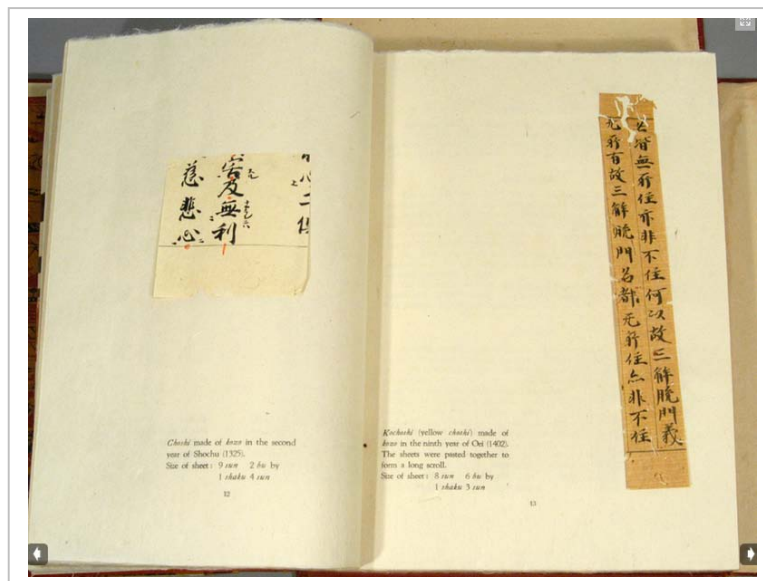 心二
及無利
慈悲心
Choshi made of kozo in the second
year of Shochu (1325).
Size of sheet: 9 sun 2 bu by
1 shaku 4 sun
12
名皆無所住亦非不住何以故三解脫門義
无所有故三解脫門名都无所住亦非不住
Kochoshi (yellow choshi) made of
kozo in the ninth year of Oei (1402).
The sheets were pasted together to
form a long scroll.
Size of sheet: 8 sun 6 bu by
1 shaku 3 sun
13